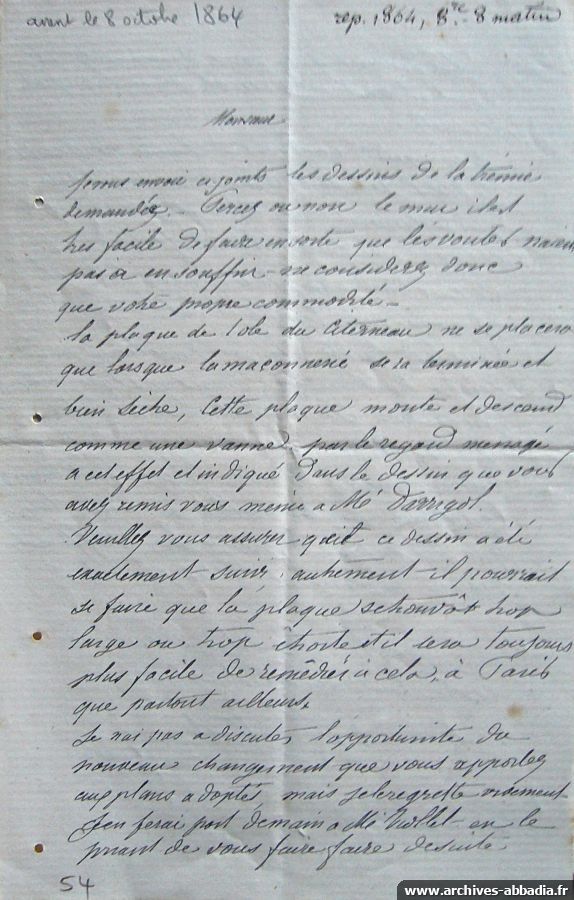 avant le 8 octobre 1864
rep. 1864, 8bre 8 matin
Monsieur
Je vous envoie ci joints les dessins de la trémie
demandée. Percez ou non le mur il est
très facile de faire en sorte que les voutes n'aient
pas à en souffrir - ne considerez donc
que votre propre commodité -
La plaque de tole du Citerneau ne se placera
que lorsque la maçonnerie sera terminée et
bien sèche, Cette plaque monte et descend
comme une vanne par le regard menagé
a cet effet et indiqué dans le dessin que vous
avez remis vous meme a Mr Darrigol.
Veuillez vous assurer que ce dessin a été
exactement suivi, autrement il pourrait
se faire que la plaque se trouvât trop
large ou trop étroite et il sera toujours
plus facile de remédier à cela, à Paris
que partout ailleurs,
Je n'ai pas a discuter l'opportunité du
nouveau changement que vous apportez
aux plans adoptés, mais je le regrette vivement
J'en ferai part demain a Mr Viollet en le
priant de vous faire faire de suite
54
www.archives-abbadia.fr